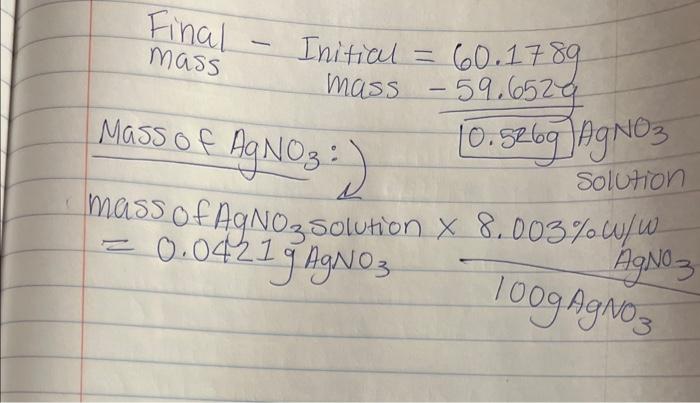 Final mass - Initial mass = 60.178g
- 59.652g
0.526g AgNO3 solution
Mass of AgNO3:
mass of AgNO3 solution x 8.003% w/w AgNO3
100g AgNO3
= 0.0421g AgNO3